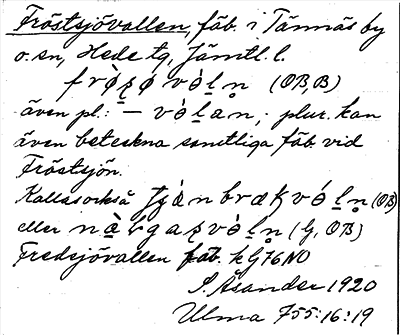 Fröstsjövallen, fäb. i Tännäs by
o. sn, Hede tg, Jämtl. l.
(OB, B)
även pl.: – vålan; plur. kan
även beteckna samtliga fäb. vid
Fröstsjön.
Kallas också (OB)
eller (G, OB)
Fredsjövallen fäb. k G76NO
S. Åsander 1920
Ulma 755:16:19